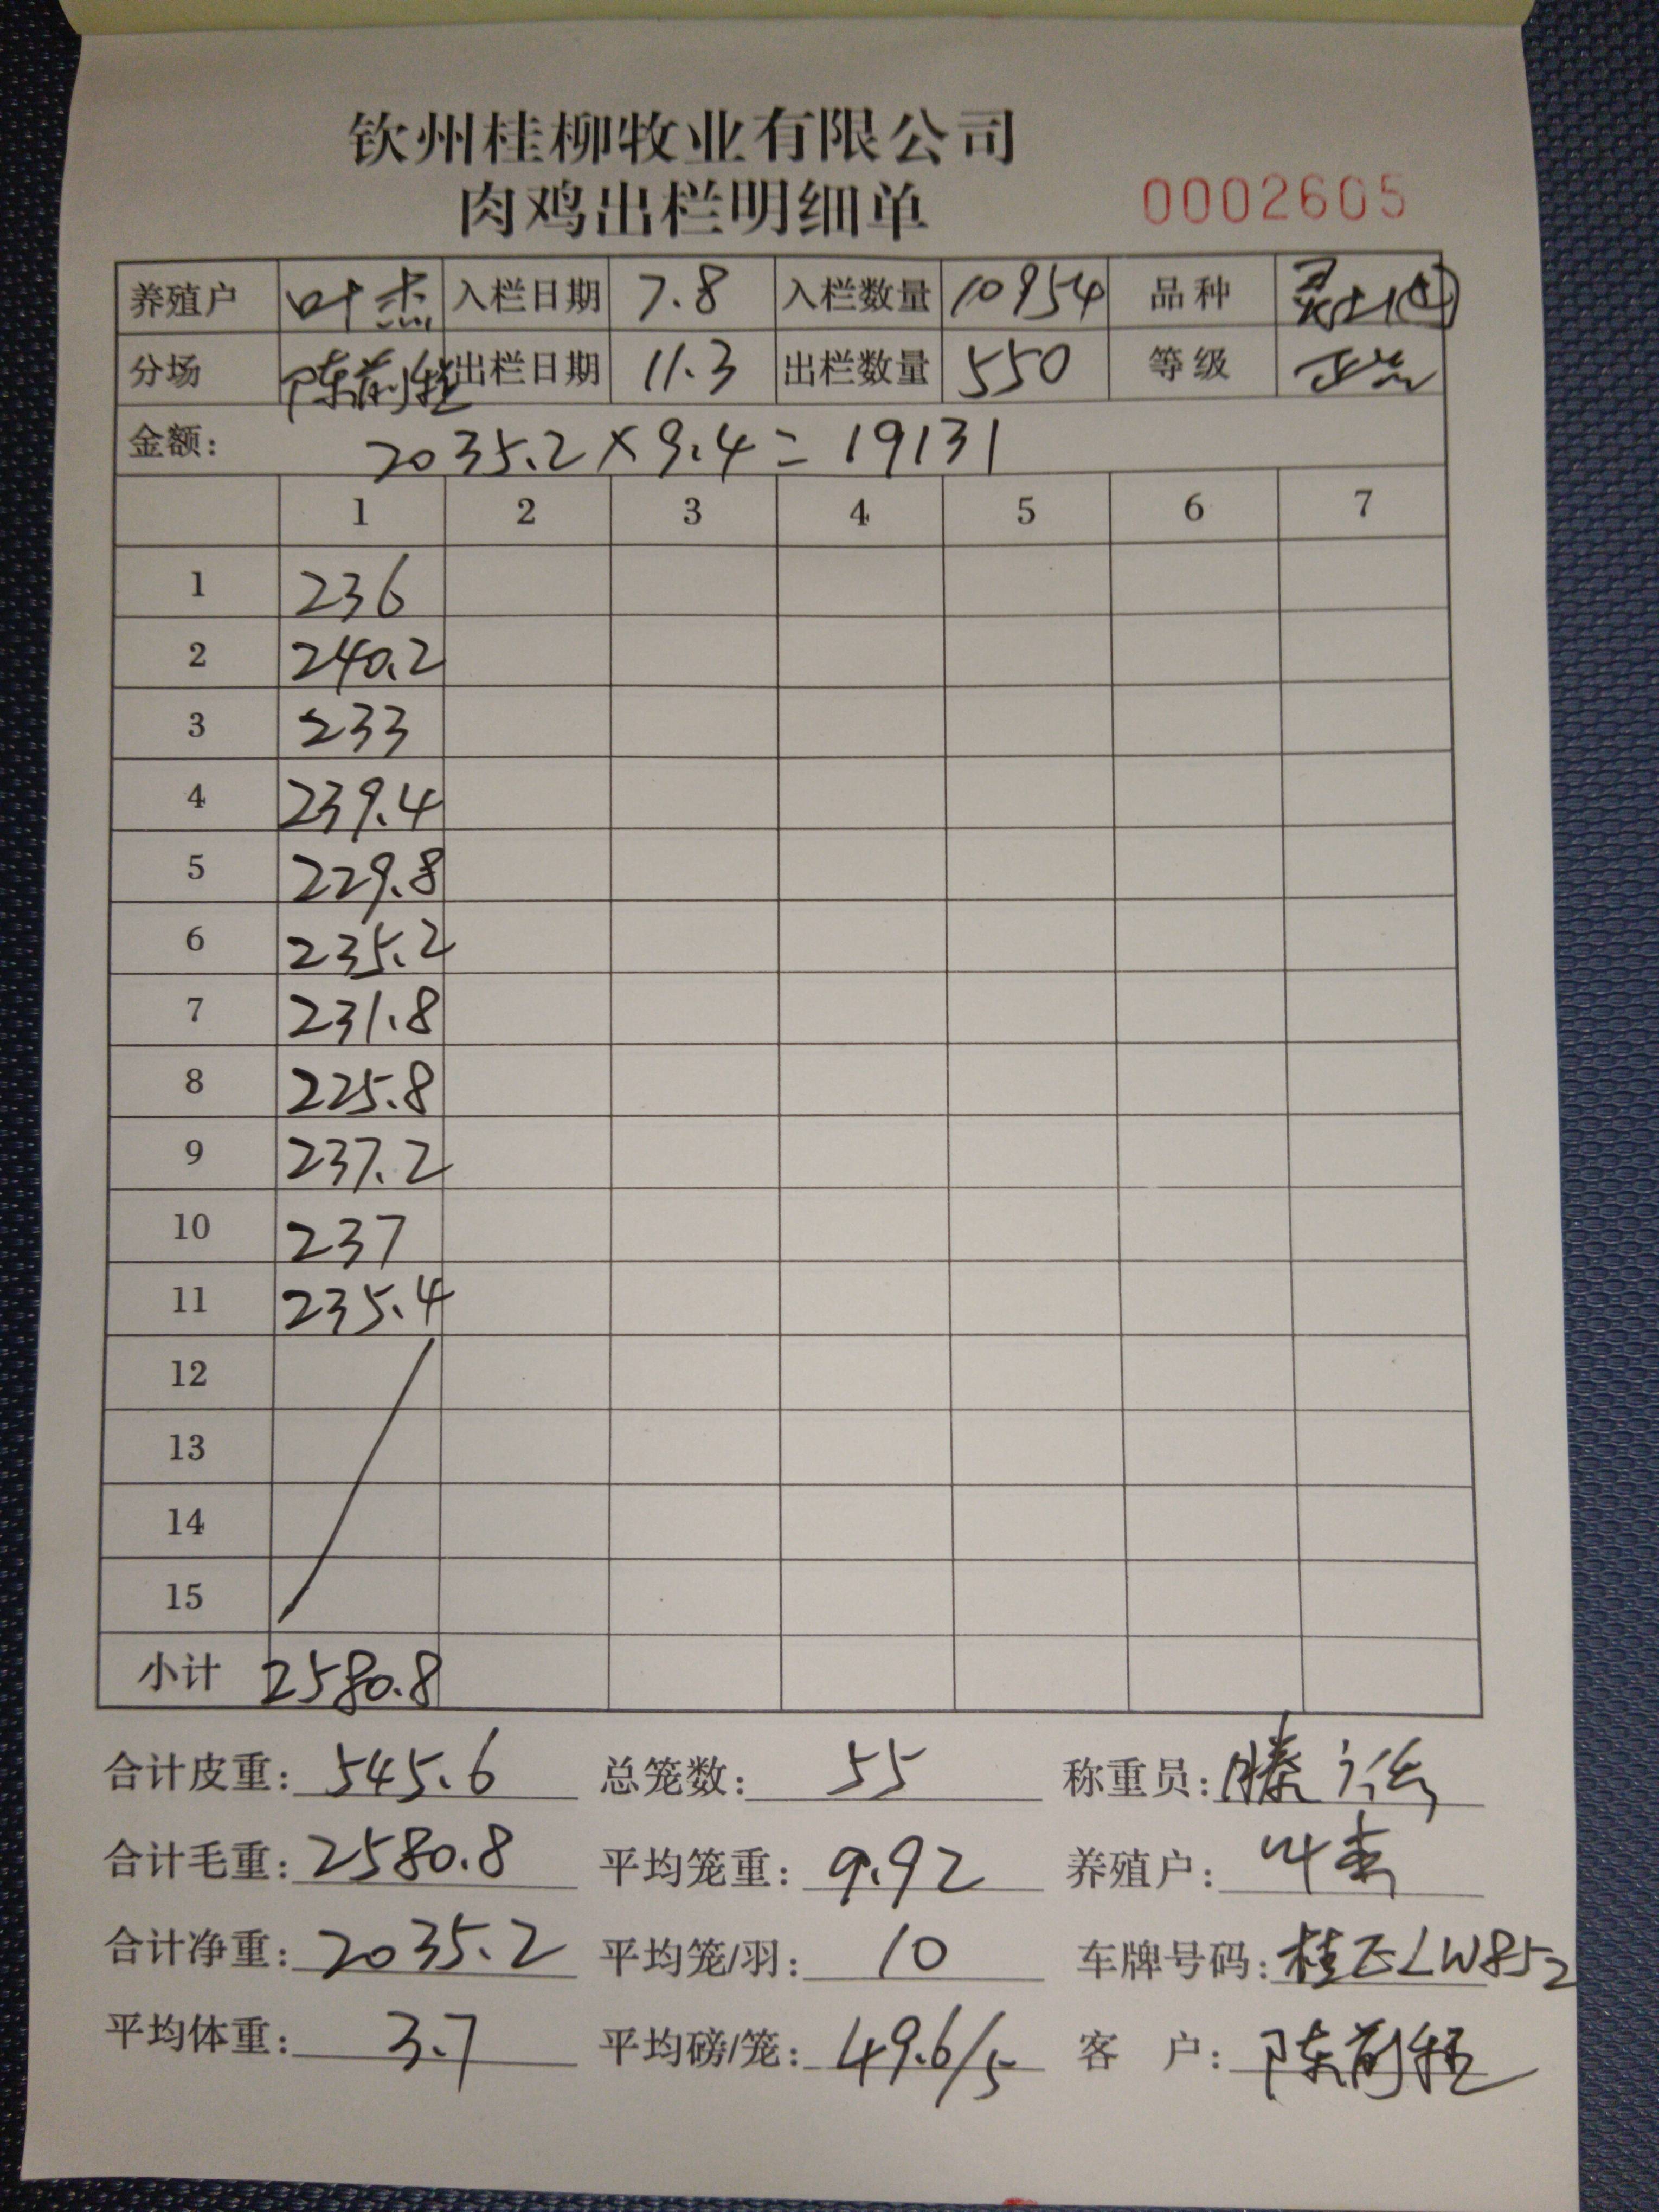 钦州桂柳牧业有限公司
肉鸡出栏明细单 0002605
养殖户 叶杰 入栏日期 7.8 入栏数量 10954 品种
分场 陈前程 出栏日期 11.3 出栏数量 550 等级 正品
金额: 2035.2×9.4=19131
1 2 3 4 5 6 7
1 236
2 240.2
3 233
4 239.4
5 229.8
6 235.2
7 231.8
8 225.8
9 237.2
10 237
11 235.4
12
13
14
15
小计 2580.8
合计皮重: 545.6 总笼数: 55 称重员: 滕
合计毛重: 2580.8 平均笼重: 9.92 养殖户: 叶杰
合计净重: 2035.2 平均笼/羽: 10 车牌号码:
平均体重: 3.7 平均磅/笼: 49.6/5 客 户: 陈前程